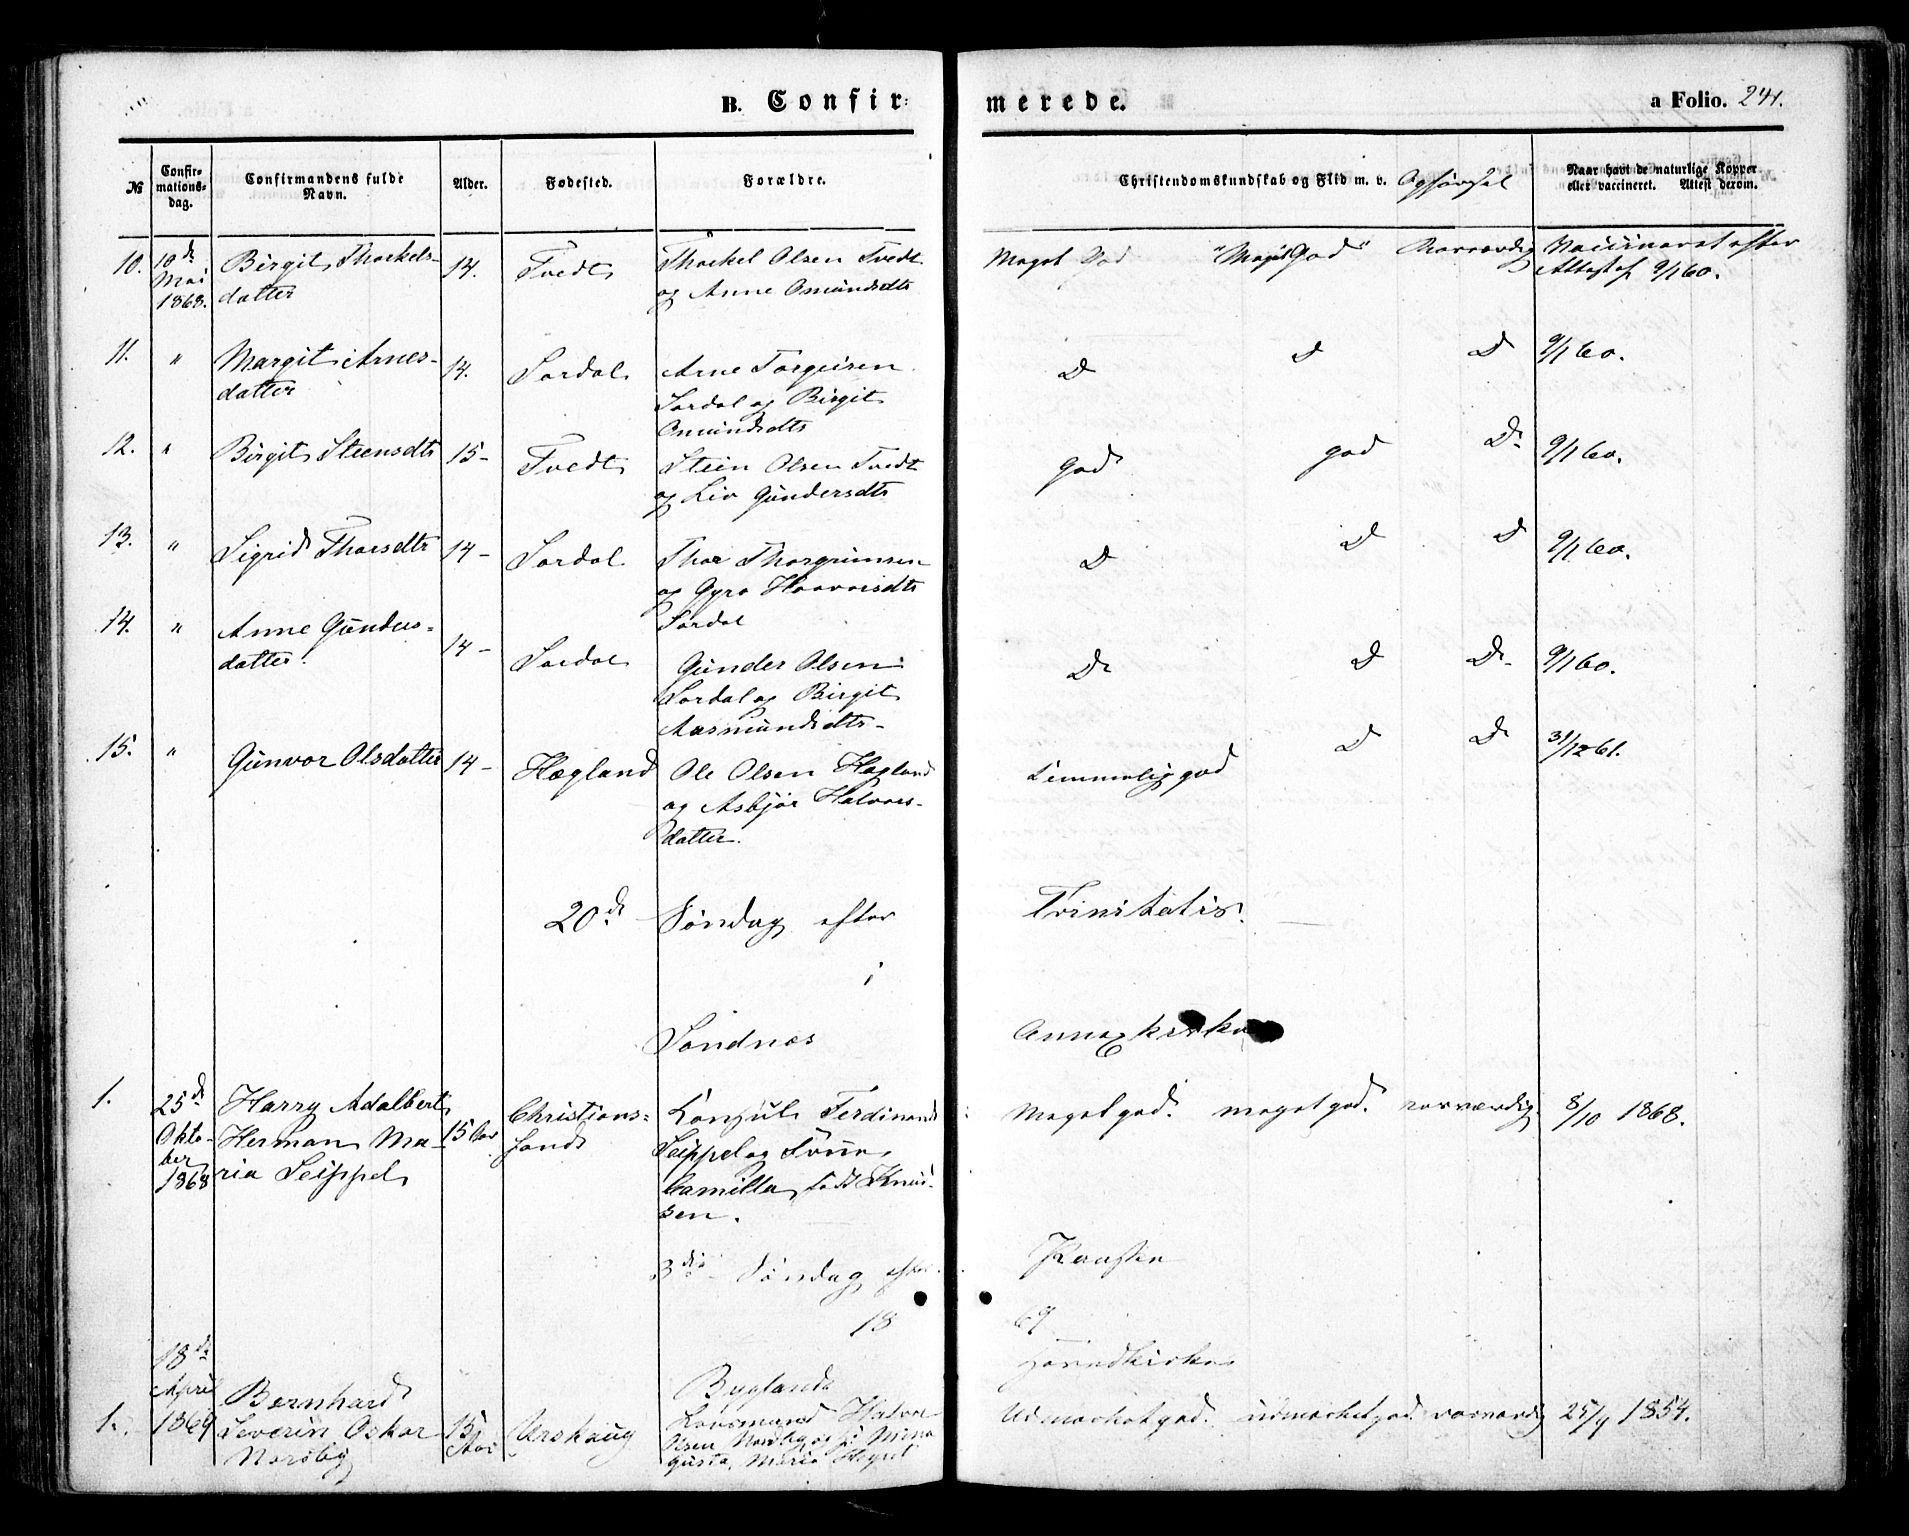 B. Confir=
merede.
a Folio. 241.
№
Confir-
mations-
dag.
Confirmandens fulde
Navn.
Alder.
Fødested.
Forældre.
Christendomskundskab og Flid m. v. Opførsel
Naar havt de naturlige Kopper
eller vaccineret. Attest derom.
10.
10de
Mai
1868.
Birgit Thorkels-
datter
14.
Tvedt
Thorkel Olsen Tvedt
og Anne Omundsdtr
Meget God
"Meget God"
Norværdig
Vaccineret efter
Attest af 9/1 60.
11.
"
Margit Arnes-
datter
14.
Sordal
Arne Torgeirsen
Sordal og Birgit
Omundsdtr
D
D
D
9/1 60.
12.
"
Birgit Steensdtr
15-
Tvedt
Stein Olsen Tvedt
og Liv Gundersdtr
God
god
Do
9/1 60.
13.
"
Sigrid Thorsdtr
14-
Sordal
Thor Thorgrimsen
og Gyro Haavorsdtr
Sordal
D
D
D
9/1 60.
14.
"
Anne Gunders=
datter.
14-
Sordal
Gunder Olsen
Sordal og Birgit
Aasmundsdtr-
Do
D
Do
9/1 60.
15.
"
Gunvor Olsdatter
14-
Hægland
Ole Olsen Hægland
og Asbjør Halvors-
datter.
Temmelig god
D
D
31/12 61.
20de Søndag efter Trinitatis.
i
Sandnes Annexkirke
1.
25de
Okto-
ber
1868
Harry Adalbert
Herman Ma-
ria Seippel
15 Aar
Christians=
sand
Konsul Ferdinand
Seippel og
Camilla, født Knud-
sen.
Meget god.
meget god.
norværdig
8/10 1868.
3die Søndag efter Paaske
18 69
Byglands Hovedkirke
1.
18de
April
1869
Bernhard
Severin Oskar
Nordby
15
Aar
Urskaug
Lensmand Halvor
Olsen Nordby og
gusta Maria Heyret
Udmærket god.
udmærket god.
norværdig
25/9 1854.